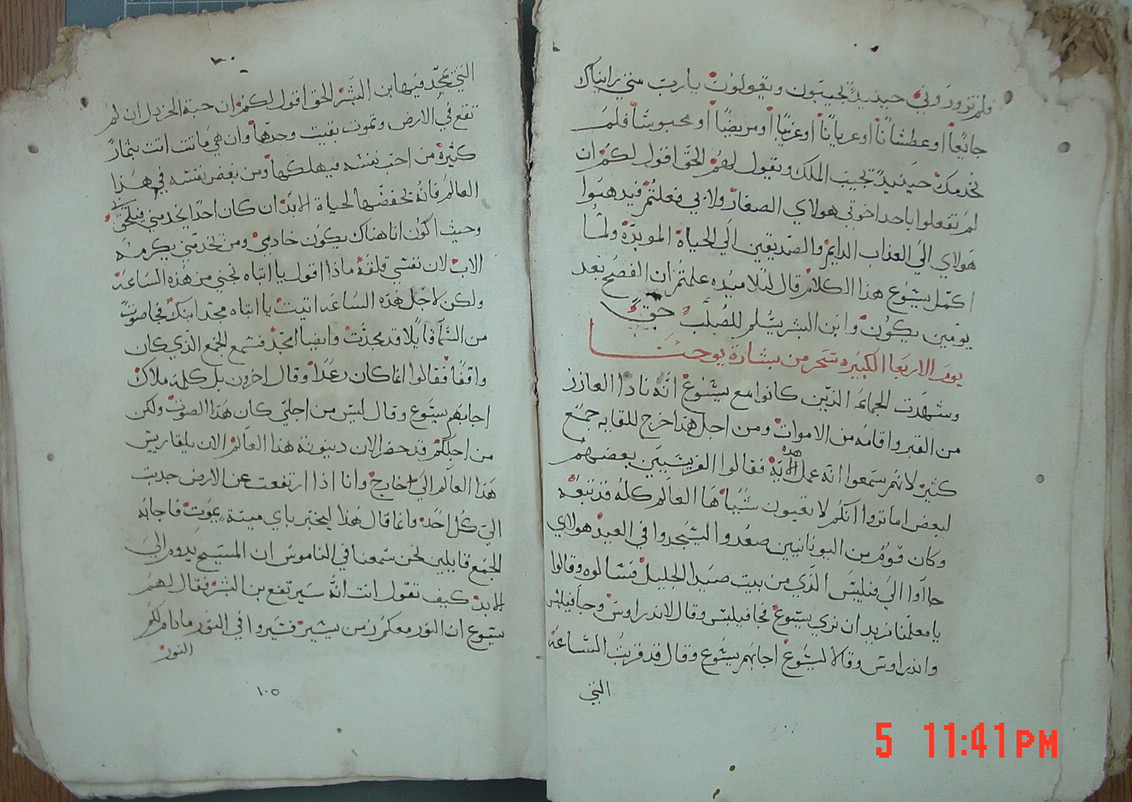 فلم تزوروني حينيدٍ تجيبون ويقولون يارب متي رايناك
جايعاً او عطشاناً او عرياناً او غريباً او مريضاً او محبوساً فلم
نخدمك حينيدٍ تجيب الملك ويقول لهم الحق اقول لكم ان
لم تفعلوا باحد اخوتي هولاي الصغار ولا بي فعلتم فيدهبوا
هولاي الي العداب الدايم والصديقين الي الحياة الموبده ولما
اكمل يسوع هذا الكلام قال لتلاميده علمتم ان الفصح بعد
يومين يكون وابن البشر يسلم للصلب حقاً
يوم الاربعا الكبيره سحر من بشارة يوحنا
وشهدت الجماعه الذين كانوا مع يسوع انه نادا العازر
من القبر واقامه من الاموات ومن اجل هذا خرج للقايه جمع
كثير لانهم سمعوا انه عمل هده الايه فقالوا الفريسيين بعضهم
لبعض اما تروا انكم لا تفيون شيا ها العالم كله قد تبعه
وكان قوم من اليونانيين صعدوا ليسجدوا في العيد هولاي
جاآوا الي فيلبس الذي من بيت صيدا الجليل فسالوه وقالوا
يا معلمنا نريد ان نري يسوع فجا فيلبس وقال لاندراوس وجا فيلبس
واندراوس وقالا ليسوع اجابهم يسوع وقال قد قربت الساعه
التي
التي يمجد فيها بن البشر الحق اقول لكم ان حبة الخردل ان لم
تقع في الارض وتموت بقيت وحدها وان هي ماتت اتت بثمار
كثيرة من احب نفسه فيهلكها ومن بغض نفسه في هذا
العالم فانه يحفضها لحياة الابد ان كان احد يخدمني فيلحقني
وحيث اكون انا هناك يكون خادمي ومن يخدمني يكرمه
الاب لان نفسي قلقه ماذا اقول يا ابتاه نجني من هذه الساعة
ولكن لاجل هذه الساعه اتيت يا ابتاه مجد ابنك فجا صوت
من السما قايلا قد مجدت وايضا امجد فسمع الجمع الذي كان
واقفاً فقالوا انما كان رعداً وقال اخرون بل كلمه ملاك
اجابهم يسوع وقال ليس من اجلي كان هذا الصوت ولكن
من اجلكم قد حضر الان دينونة هذا العالم الان يلقا ريس
هذا العالم الي خارج وانا اذا ارتفعت عن الارض جدبت
الي كل احد وانما قال هذا ليخبر باي ميتة يموت فاجابه
الجمع قايلين نحن سمعنا في الناموس ان المسيح يدوم الي
الابد كيف تقول انت انه سيرتفع بن البشر فقال لهم
يسوع ان النور معكم زمن يسير فسيروا في النور مادام لكم
النور
١٠٥
5 11:41PM